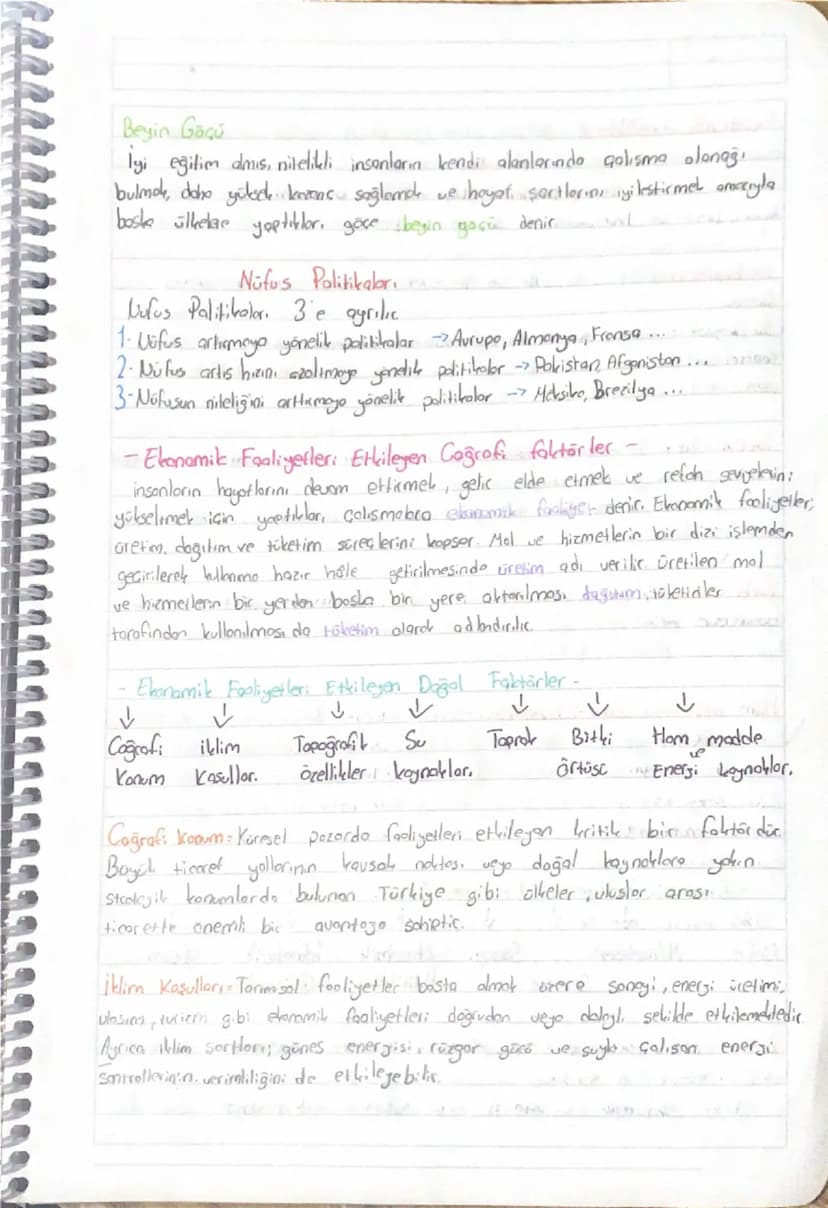 Beyin Göçü
İyi eğitim almış, nitelikli insanların kendi alanlarında çalışma olanağı
bulmak, daha yüksek kazanc sağlamak ve hayat şartlarını iyilestirmek amacıyla
baska ülkelere yaptıkları göçe beyin göçü denir.
Nüfus Politikaları
Nüfus Politikaları 3'e ayrılır
1- Nüfus artırmaya yönelik politikalar → Avrupa, Almanya, Fransa ...
2- Nüfus artıs hızını azalmaya yönelik politikalar → Pakistan, Afganistan ...
3- Nüfusun niteliğini arttırmaya yönelik politikalar → Meksika, Brezilya ...
- Ekonomik Faaliyetleri Etkileyen Coğrafi faktörler -
insanların hayatlarını devam ettirmek, gelir elde etmek ve refah seviyelerini
yükseltmek için yaptıkları çalısmalara ekonomik faaliyet denir. Ekonomik faaliyetler;
üretim, dagıtım ve tüketim süreçlerini kapsar. Mal ve hizmetlerin bir dizi işlemden
geçirilerek kullanıma hazır hâle getirilmesinde üretim adı verilir. üretilen mal
ve hizmetlerin bir yerden baska bir yere aktarılması dağıtım, tüketiciler
tarafından kullanılması da tüketim olarak adlandırılır.
- Ekonamik Faaliyetleri Etkileyen Doğal Faktörler -
↓ ↓ ↓ ↓ ↓ ↓ ↓
Coğrafi iklim Topoğrafik Su Toprak Bitki Ham madde
ve
Konum Kosulları özellikler kaynakları örtüsü Enerji kaynakları
Coğrafi Konum = Küresel pazarda faaliyetleri etkileyen kritik bir faktördür.
Büyük ticaret yollarının kavsak noktası veya doğal kaynaklara yakın
stratejik konumlarda bulunan Türkiye gibi ülkeler, uluslar arası
ticarette önemli bir avantaja sahiptir.
İklim Koşulları = Tarımsal faaliyetler basta olmak üzere sanayi, enerji üretimi,
ulasım, turizm gibi ekonomik faaliyetleri doğrudan veya dolaylı sekilde etkilemektedir
Ayrıca iklim sartları; günes enerjisi, rüzgar gücü ve suyla çalısan enerji
santrallerinin verimliliğini de etkileyebilir.